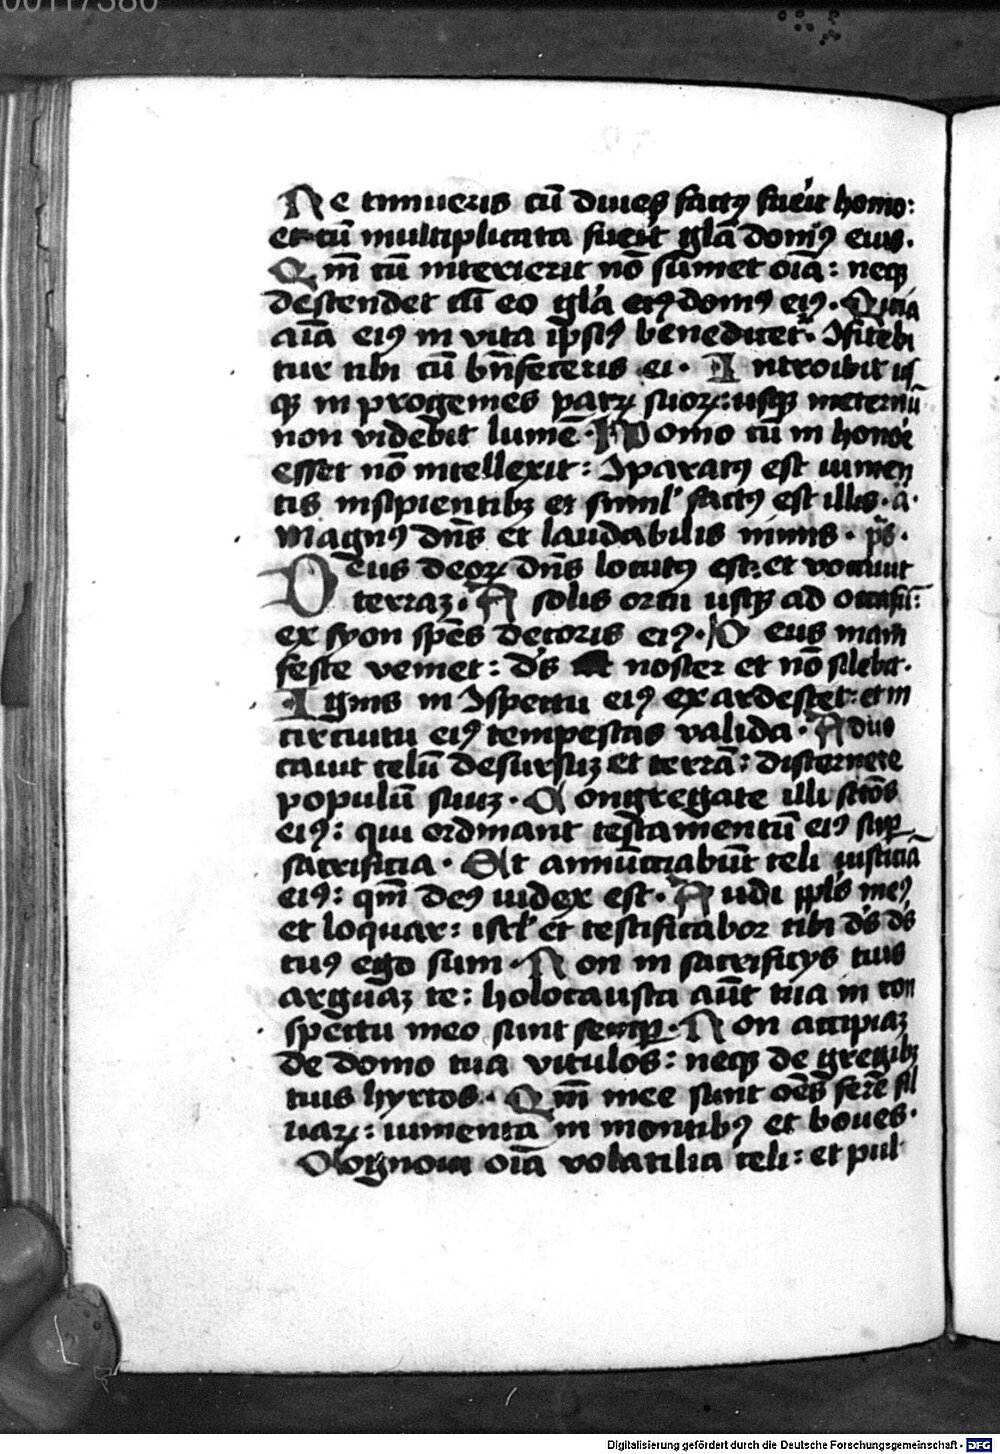 00117380
Ne timueris cū diues factꝰ fue'it homo:
et cū multiplicata fue'it gl'a domꝰ eius.
Qm̄ cū interierit nō sumet oīa: neqꝫ
descendet cū eo gl'a eiꝰ domꝰ eiꝰ. Quia
aīa eiꝰ in vita ip̄siꝰ benedicet'. Ɔfitebi
tur tibi cū bn̄feceris ei. Introibit us
qꝫ in progenies patrꝝ suoꝝ: usqꝫ ineternū
non videbit lumē. Homo cū in hono'e
esset nō intellexit: Ɔparatꝰ est iumen
tis insipientibꝫ et simil' factꝰ est illis. a͞.
Magnꝰ dn̄s et laudabilis nimis. ps̄.
Deus deoꝝ dn̄s locutꝰ est: et vocauit
terraꝫ. A solis ortu usqꝫ ad occasū:
ex syon spēs decoris eiꝰ. Deus mani
feste veniet: d's noster et nō sileb̄it.
Ignis in Ɔspectu eiꝰ exardescet: et in
circuitu eiꝰ tempestas valida. Aduo
cauit celū desursuꝫ et terrā: discernere
populū suuꝫ. Congregate illi scōs
eiꝰ: qui ordinant testamentū eiꝰ suꝑ
sacrificia. Et annūciabūt celi iusticiā
eiꝰ: qm̄ deꝰ iudex est. Audi ppl's meꝰ
et loquar: isrl' et testificabor tibi d's d's
tuꝰ ego sum. Non in sacrificijs tuis
arguaꝫ te: holocausta aūt tua in con
spectu meo sunt semꝑ. Non accipiaꝫ
de domo tua vitulos: neqꝫ de gregibꝫ
tuis hyrcos. Qm̄ mee sunt oēs fere sil
uaꝝ: iumenta in montibꝰ et boues.
Cognoui oīa volatilia celi: et pul
Digitalisierung gefördert durch die Deutsche Forschungsgemeinschaft - DFG